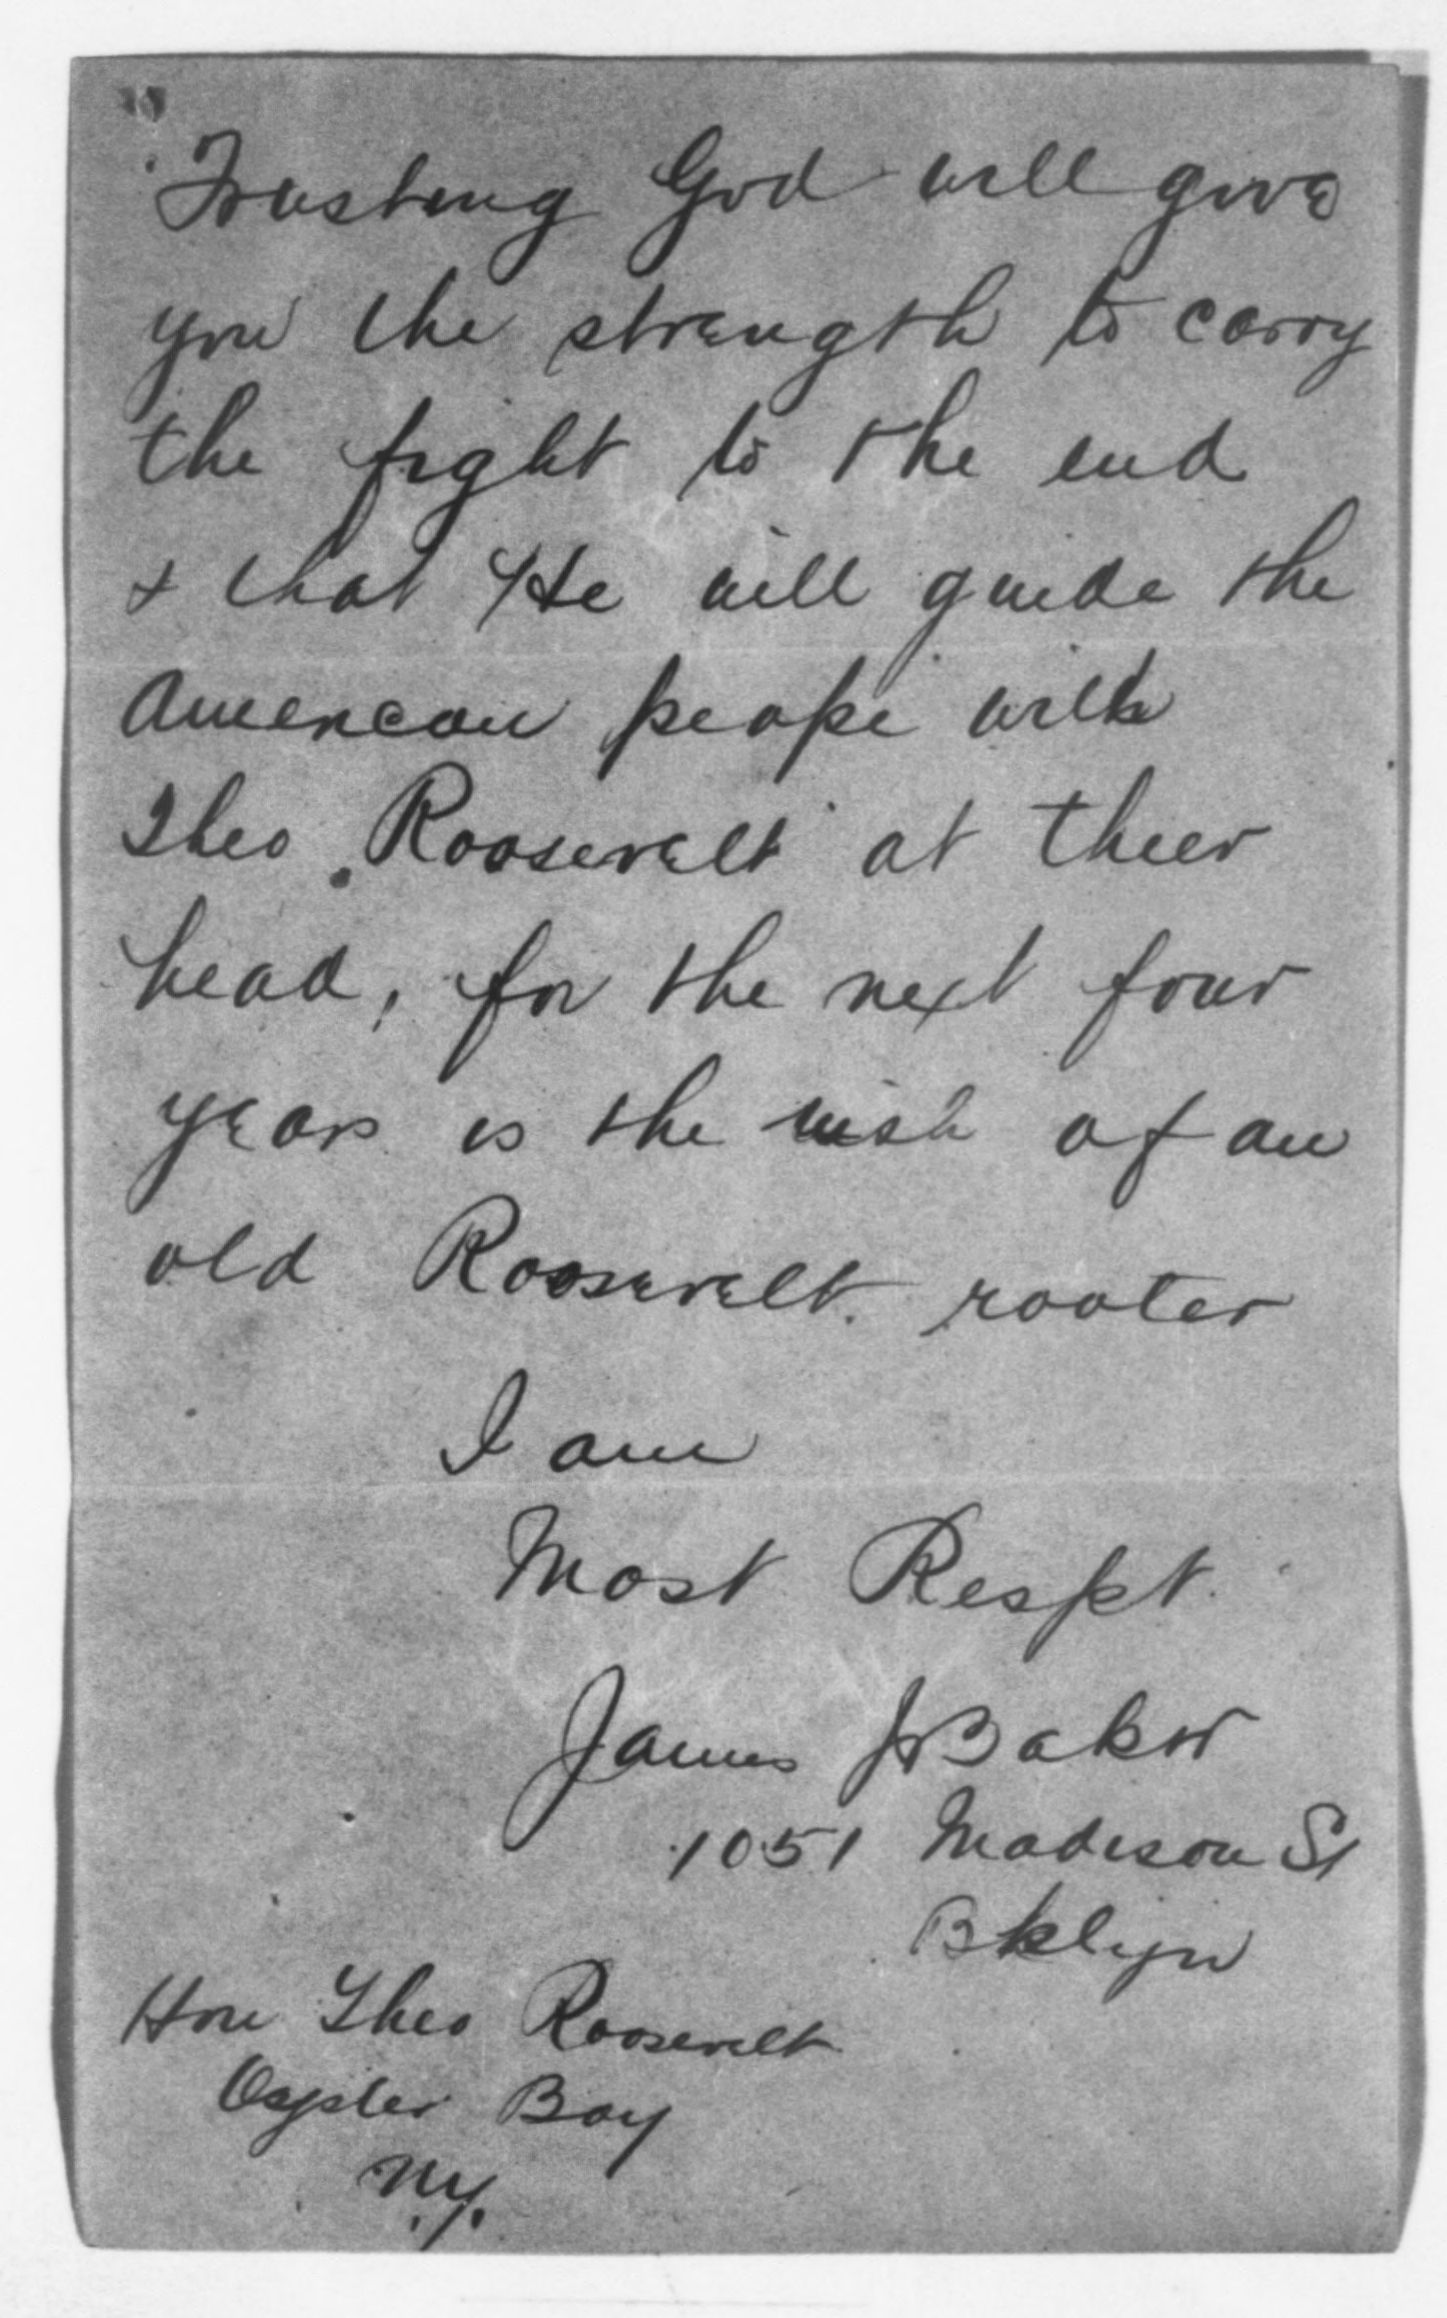 Trusting God will give
you the strength to carry
the fight to the end
& that He will guide the
American peope with
Theo. Roosevelt at their
head, for the next four
years is the wish of an
old Roosevelt rooter
I am
Most Respt.
James J Baker
1051 Madison St
Bklyn
Hon Theo Roosevelt
Oyster Bay
N.Y.